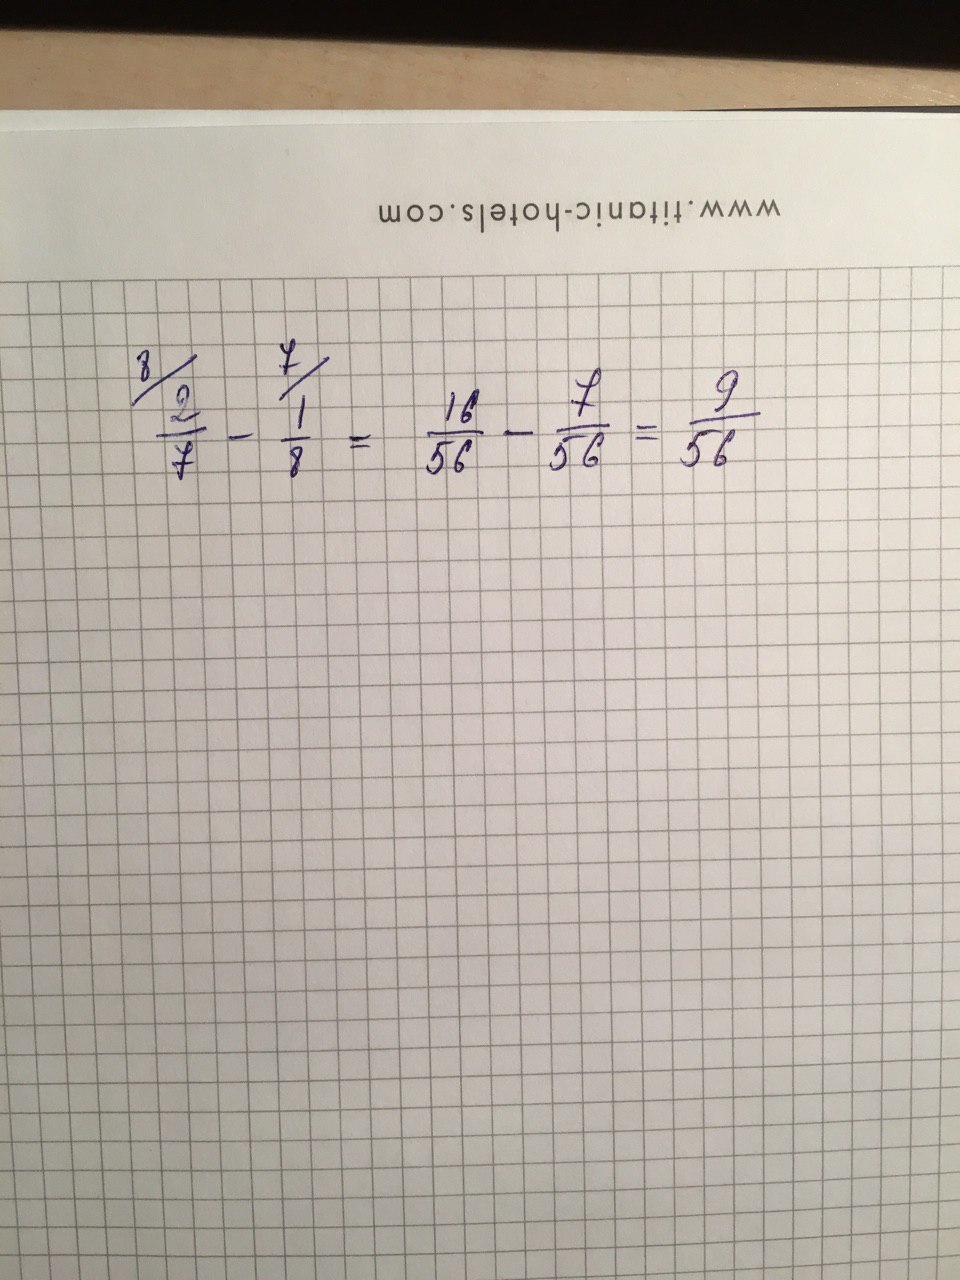 www.titanic-hotels.com
8/ 7/
2/7 - 1/8 = 16/56 - 7/56 = 9/56